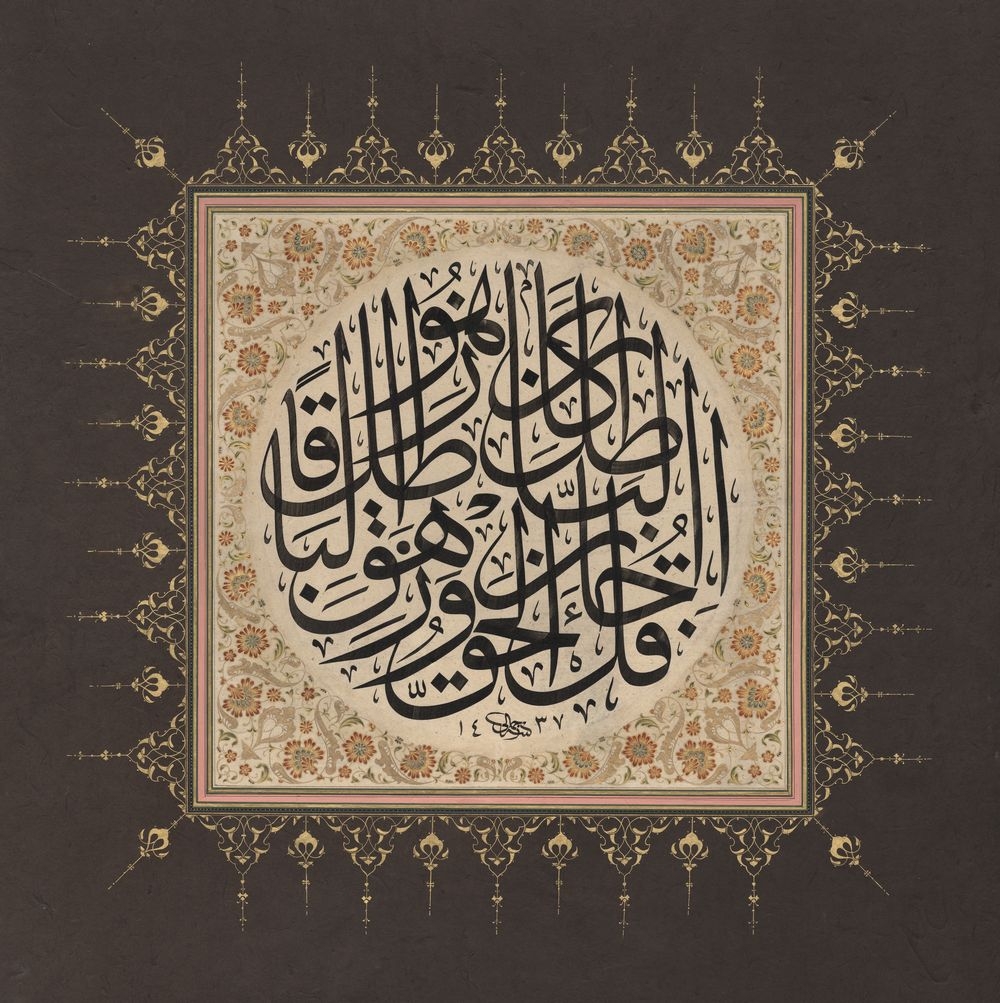 قُلْ جَاءَ الْحَقُّ وَزَهَقَ الْبَاطِلُ إِنَّ الْبَاطِلَ كَانَ زَهُوقًا
١٤٣٧